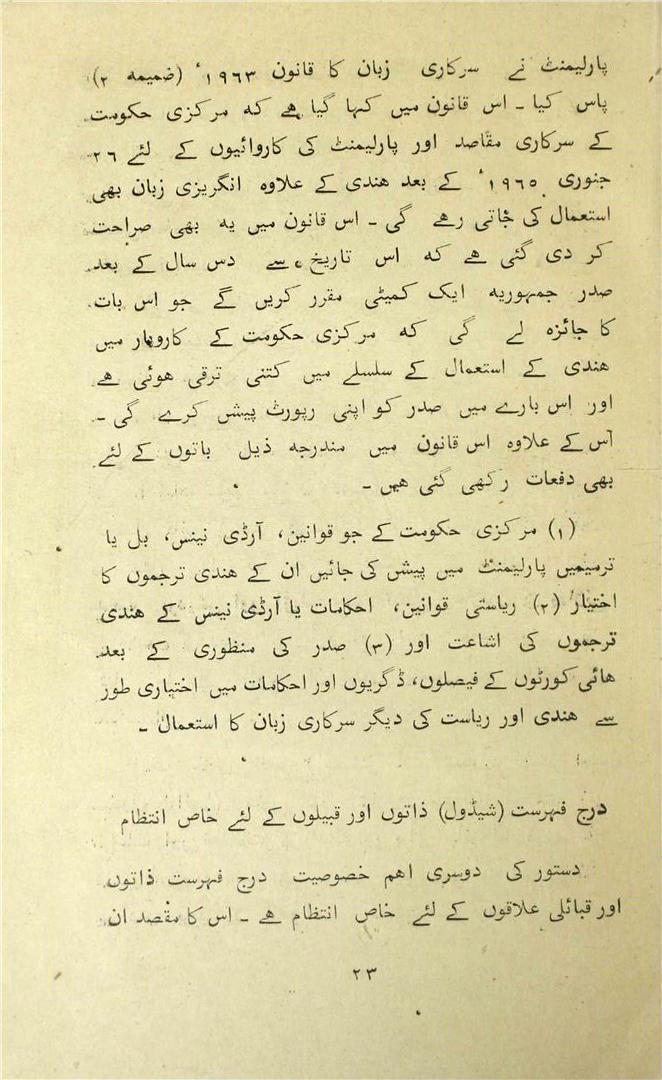 پارلیمنٹ نے سرکاری زبان کا قانون ۱۹۶۳ء (ضمیمہ ۲)
پاس کیا ۔ اس قانون میں کہا گیا ہے کہ مرکزی حکومت
کے سرکاری مقاصد اور پارلیمنٹ کی کاروائیوں کے لئے ۲۶
جنوری ۱۹۶۵ء کے بعد ہندی کے علاوہ انگریزی زبان بھی
استعمال کی جاتی رہے گی ۔ اس قانون میں یہ بھی صراحت
کر دی گئی ہے کہ اس تاریخ سے دس سال کے بعد
صدر جمہوریہ ایک کمیٹی مقرر کریں گے جو اس بات
کا جائزہ لے گی کہ مرکزی حکومت کے کاروبار میں
ہندی کے استعمال کے سلسلے میں کتنی ترقی ہوئی ہے
اور اس بارے میں صدر کو اپنی رپورٹ پیش کرے گی ۔
اس کے علاوہ اس قانون میں مندرجہ ذیل باتوں کے لئے
بھی دفعات رکھی گئی ہیں ۔
(۱) مرکزی حکومت کے جو قوانین، آرڈی نینس، بل یا
ترمیمیں پارلیمنٹ میں پیش کی جائیں ان کے ہندی ترجموں کا
اختیار (۲) ریاستی قوانین، احکامات یا آرڈی نینس کے ہندی
ترجموں کی اشاعت اور (۳) صدر کی منظوری کے بعد
ہائی کورٹوں کے فیصلوں، ڈگریوں اور احکامات میں اختیاری طور
سے ہندی اور ریاست کی دیگر سرکاری زبان کا استعمال ۔
درج فہرست (شیڈول) ذاتوں اور قبیلوں کے لئے خاص انتظام
دستور کی دوسری اہم خصوصیت درج فہرست ذاتوں
اور قبائلی علاقوں کے لئے خاص انتظام ہے ۔ اس کا مقصد ان
۲۳